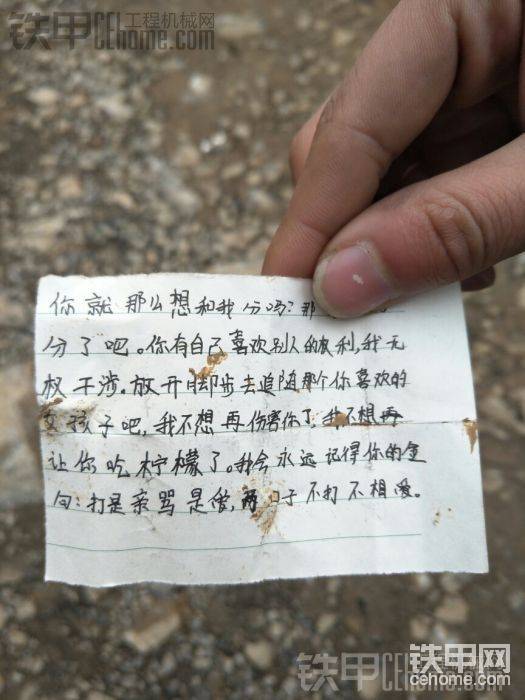 铁甲 工程机械网
CEHome.com
你就那么想和我分吗?那
分了吧。你有自己喜欢别人的权利,我无
权干涉.放开脚步去追随那个你喜欢的
女孩子吧,我不想再伤害你了,我不想再
让你吃柠檬了。我会永远记得你的金
句:打是亲骂是爱,两口子不打不相爱。
铁甲 CEHome.com
铁甲网
cehome.com